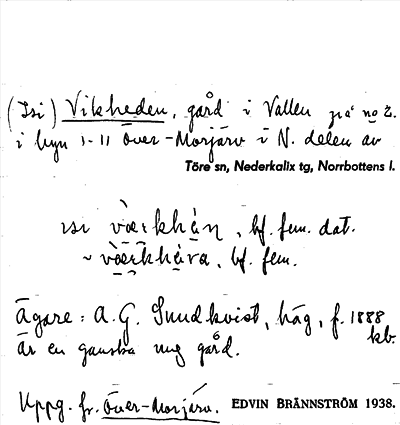 (Isi) Vikheden, gård i Vallen på no 2.
i byn 1-11 Över-Morjärv i N. delen av
Töre sn, Nederkalix tg, Norrbottens l.
isi , bf. fem. dat.
~ , bf. fem.
Ägare: A. G. Sundkvist, häg, f. 1888 kb.
är en ganska ung gård.
Uppg. fr. Över-Morjärv. EDVIN BRÄNNSTRÖM 1938.